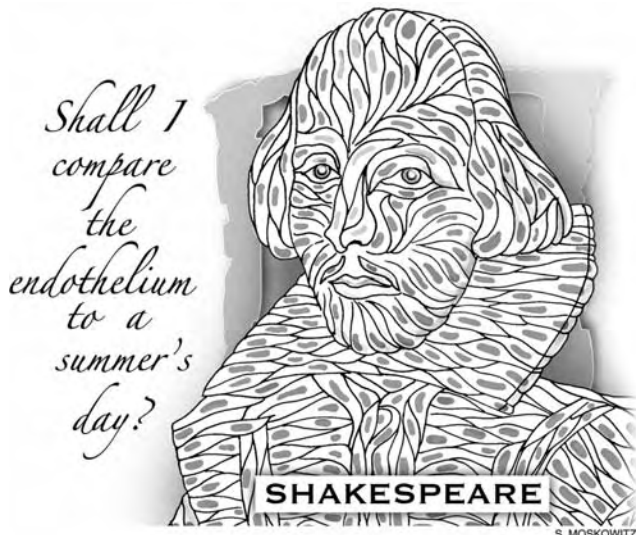 Shall I
compare
the
endothelium
to a
summer's
day?
SHAKESPEARE
S. MOSKOWITZ